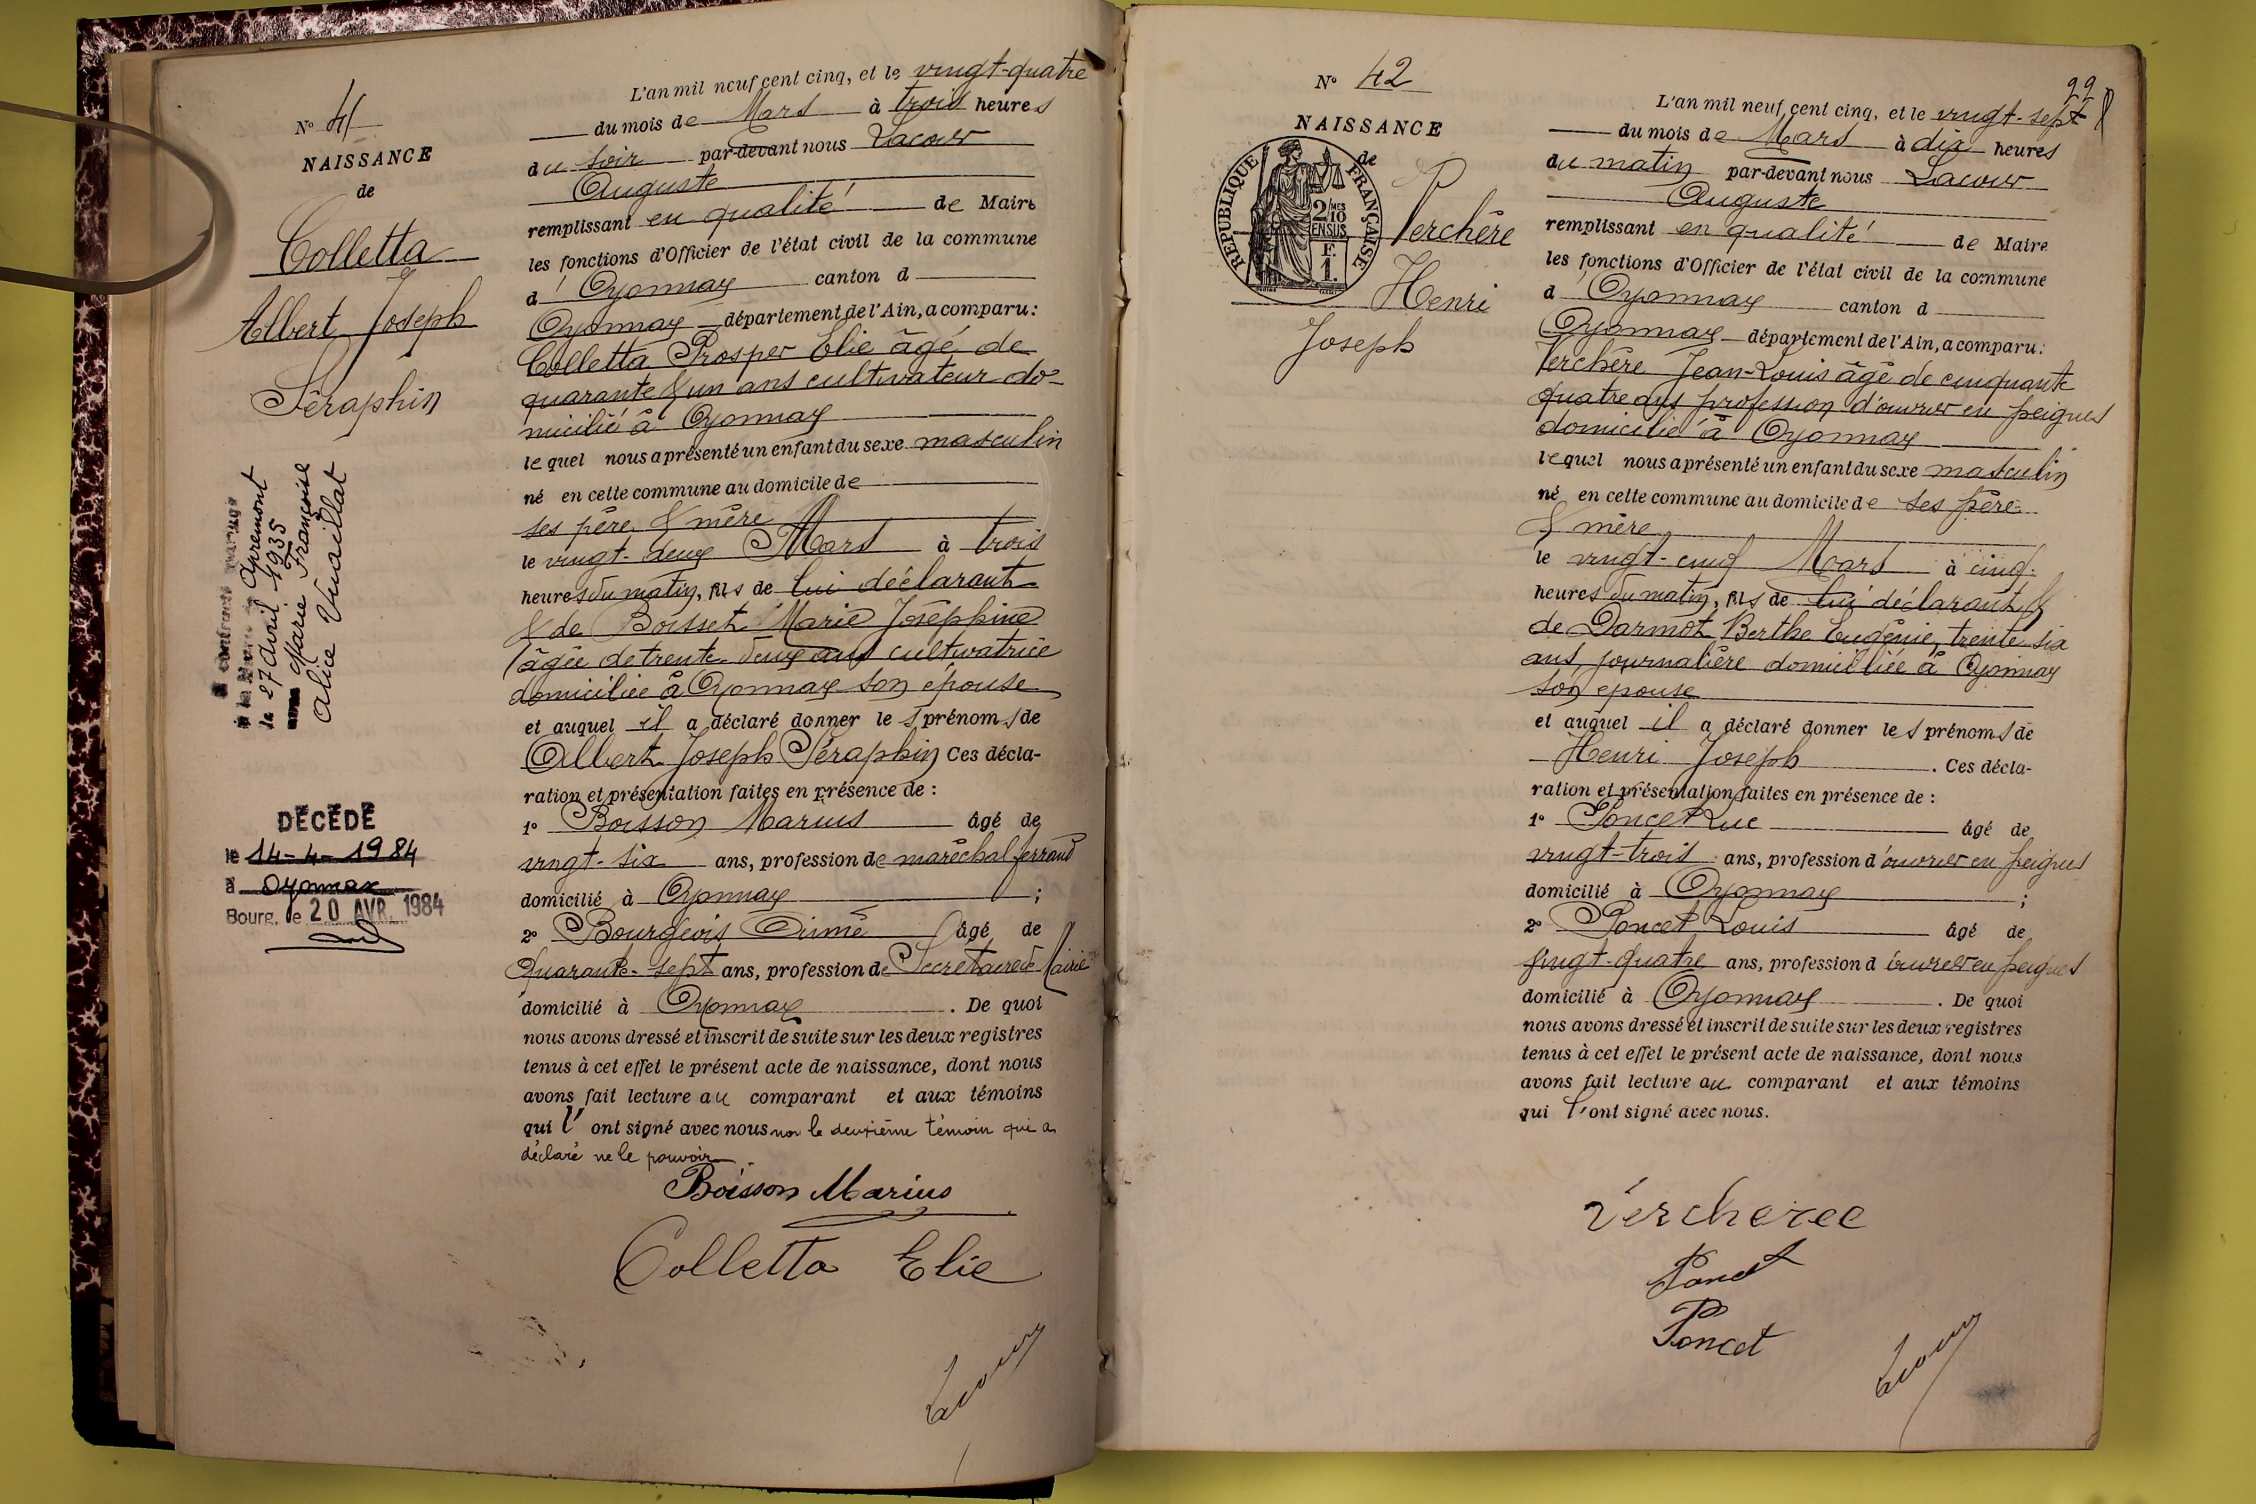 N° 41
NAISSANCE
de
Colletta
Albert Joseph
Séraphin
a contracté mariage
à la Mairie Apremont
le 27 avril 1935
avec Marie Françoise
Alice Vuaillat
DÉCÉDÉ
le 14-4-1984
à Oyonnax
Bourg, le 20 AVR. 1984
L'an mil neuf cent cinq, et le vingt-quatre
du mois de Mars à trois heures
du soir par-devant nous Lacour
Auguste
remplissant en qualité de Maire
les fonctions d'Officier de l'état civil de la commune
d' Oyonnax canton d
Oyonnax département de l'Ain, a comparu:
Colletta Prosper Elie âgé de
quarante & un ans cultivateur do-
micilié à Oyonnax
lequel nous a présenté un enfant du sexe masculin
né en cette commune au domicile de
ses père & mère
le vingt-deux Mars à trois
heures du matin, fils de lui déclarant
& de Boisset Marie Joséphine
âgée de trente-deux ans cultivatrice
domiciliée à Oyonnax son épouse
et auquel il a déclaré donner les prénoms de
Albert Joseph Séraphin Ces décla-
ration et présentation faites en présence de :
1° Boisson Marius âgé de
vingt-six ans, profession de maréchal ferrand
domicilié à Oyonnax ;
2° Bourgeois Aimé âgé de
Quarante-sept ans, profession de Secrétaire de Mairie
domicilié à Oyonnax . De quoi
nous avons dressé et inscrit de suite sur les deux registres
tenus à cet effet le présent acte de naissance, dont nous
avons fait lecture au comparant et aux témoins
qui l' ont signé avec nous non le deuxième témoin qui a
déclaré ne le pouvoir
Boisson Marius
Colletta Elie
Lacour
22
N° 42
NAISSANCE
de
RÉPUBLIQUE FRANÇAISE
2/10 MES
EN SUS
F.
1.
Verchère
Henri
Joseph
L'an mil neuf cent cinq, et le vingt-sept
du mois de Mars à dix heures
du matin par-devant nous Lacour
Auguste
remplissant en qualité de Maire
les fonctions d'Officier de l'état civil de la commune
d Oyonnax canton d
Oyonnax département de l'Ain, a comparu:
Verchère Jean-Louis âgé de cinquante
quatre ans profession d'ouvrier en peignes
domicilié à Oyonnax
lequel nous a présenté un enfant du sexe masculin
né en cette commune au domicile de ses père
& mère
le vingt-cinq Mars à cinq
heures du matin, fils de lui déclarant &
de Darmot Berthe Eugénie, trente six
ans, journalière domiciliée à Oyonnax
son épouse
et auquel il a déclaré donner les prénoms de
Henri Joseph . Ces décla-
ration et présentation faites en présence de :
1° Poncet Luc âgé de
vingt-trois ans, profession d'ouvrier en peignes
domicilié à Oyonnax ;
2° Poncet Louis âgé de
vingt-quatre ans, profession d'ouvrier en peignes
domicilié à Oyonnax . De quoi
nous avons dressé et inscrit de suite sur les deux registres
tenus à cet effet le présent acte de naissance, dont nous
avons fait lecture au comparant et aux témoins
qui l'ont signé avec nous.
Vercherec
Poncet
Poncet
Lacour